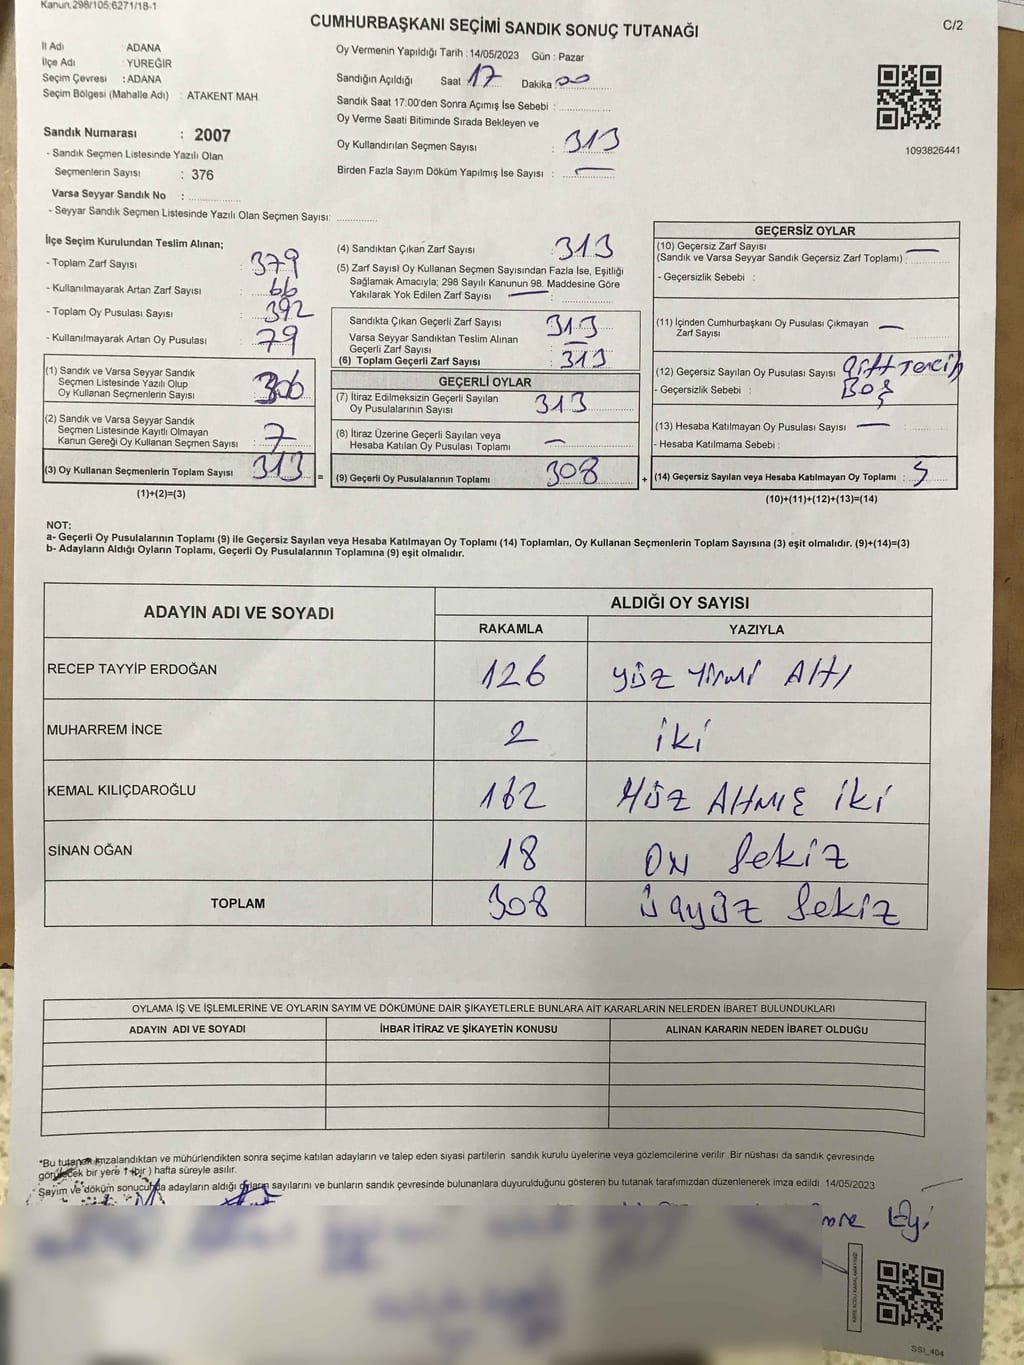 Kanun.298/105;6271/18-1
CUMHURBAŞKANI SEÇİMİ SANDIK SONUÇ TUTANAĞI
C/2
İl Adı : ADANA
İlçe Adı : YÜREĞİR
Seçim Çevresi : ADANA
Seçim Bölgesi (Mahalle Adı) : ATAKENT MAH.
Sandık Numarası : 2007
- Sandık Seçmen Listesinde Yazılı Olan
Seçmenlerin Sayısı : 376
Varsa Seyyar Sandık No :
- Seyyar Sandık Seçmen Listesinde Yazılı Olan Seçmen Sayısı:
Oy Vermenin Yapıldığı Tarih : 14/05/2023 Gün : Pazar
Sandığın Açıldığı Saat 17 Dakika 00
Sandık Saat 17:00'den Sonra Açımış İse Sebebi :
Oy Verme Saati Bitiminde Sırada Bekleyen ve
Oy Kullandırılan Seçmen Sayısı : 313
Birden Fazla Sayım Döküm Yapılmış İse Sayısı : —
1093826441
İlçe Seçim Kurulundan Teslim Alınan;
- Toplam Zarf Sayısı : 379
- Kullanılmayarak Artan Zarf Sayısı : 66
- Toplam Oy Pusulası Sayısı : 392
- Kullanılmayarak Artan Oy Pusulası : 79
(1) Sandık ve Varsa Seyyar Sandık
Seçmen Listesinde Yazılı Olup
Oy Kullanan Seçmenlerin Sayısı : 306
(2) Sandık ve Varsa Seyyar Sandık
Seçmen Listesinde Kayıtlı Olmayan
Kanun Gereği Oy Kullanan Seçmen Sayısı : 7
(3) Oy Kullanan Seçmenlerin Toplam Sayısı : 313
(1)+(2)=(3)
(4) Sandıktan Çıkan Zarf Sayısı : 313
(5) Zarf Sayısı Oy Kullanan Seçmen Sayısından Fazla İse, Eşitliği
Sağlamak Amacıyla; 298 Sayılı Kanunun 98. Maddesine Göre
Yakılarak Yok Edilen Zarf Sayısı — :
Sandıkta Çıkan Geçerli Zarf Sayısı : 313
Varsa Seyyar Sandıktan Teslim Alınan
Geçerli Zarf Sayısı : —
(6) Toplam Geçerli Zarf Sayısı : 313
GEÇERLİ OYLAR
(7) İtiraz Edilmeksizin Geçerli Sayılan
Oy Pusulalarının Sayısı : 313
(8) İtiraz Üzerine Geçerli Sayılan veya
Hesaba Katılan Oy Pusulası Toplamı : —
= (9) Geçerli Oy Pusulalarının Toplamı : 308
GEÇERSİZ OYLAR
(10) Geçersiz Zarf Sayısı
(Sandık ve Varsa Seyyar Sandık Geçersiz Zarf Toplamı) : —
- Geçersizlik Sebebi :
(11) İçinden Cumhurbaşkanı Oy Pusulası Çıkmayan —
Zarf Sayısı :
(12) Geçersiz Sayılan Oy Pusulası Sayısı Çift Tercih
- Geçersizlik Sebebi : Boş
(13) Hesaba Katılmayan Oy Pusulası Sayısı : —
- Hesaba Katılmama Sebebi :
+ (14) Geçersiz Sayılan veya Hesaba Katılmayan Oy Toplamı : 5
(10)+(11)+(12)+(13)=(14)
NOT:
a- Geçerli Oy Pusulalarının Toplamı (9) ile Geçersiz Sayılan veya Hesaba Katılmayan Oy Toplamı (14) Toplamları, Oy Kullanan Seçmenlerin Toplam Sayısına (3) eşit olmalıdır. (9)+(14)=(3)
b- Adayların Aldığı Oyların Toplamı, Geçerli Oy Pusulalarının Toplamına (9) eşit olmalıdır.
ADAYIN ADI VE SOYADI
ALDIĞI OY SAYISI
RAKAMLA YAZIYLA
RECEP TAYYİP ERDOĞAN 126 yüz yirmi Altı
MUHARREM İNCE 2 iki
KEMAL KILIÇDAROĞLU 162 Yüz Altmış iki
SİNAN OĞAN 18 on Sekiz
TOPLAM 308 üçyüz Sekiz
OYLAMA İŞ VE İŞLEMLERİNE VE OYLARIN SAYIM VE DÖKÜMÜNE DAİR ŞİKAYETLERLE BUNLARA AİT KARARLARIN NELERDEN İBARET BULUNDUKLARI
ADAYIN ADI VE SOYADI İHBAR İTİRAZ VE ŞİKAYETİN KONUSU ALINAN KARARIN NEDEN İBARET OLDUĞU
*Bu tutanak imzalandıktan ve mühürlendikten sonra seçime katılan adayların ve talep eden siyasi partilerin sandık kurulu üyelerine veya gözlemcilerine verilir. Bir nüshası da sandık çevresinde
görülecek bir yere 1 (bir) hafta süreyle asılır.
Sayım ve döküm sonucunda adayların aldığı oyların sayılarını ve bunların sandık çevresinde bulunanlara duyurulduğunu gösteren bu tutanak tarafımızdan düzenlenerek imza edildi. 14/05/2023
SSI_404